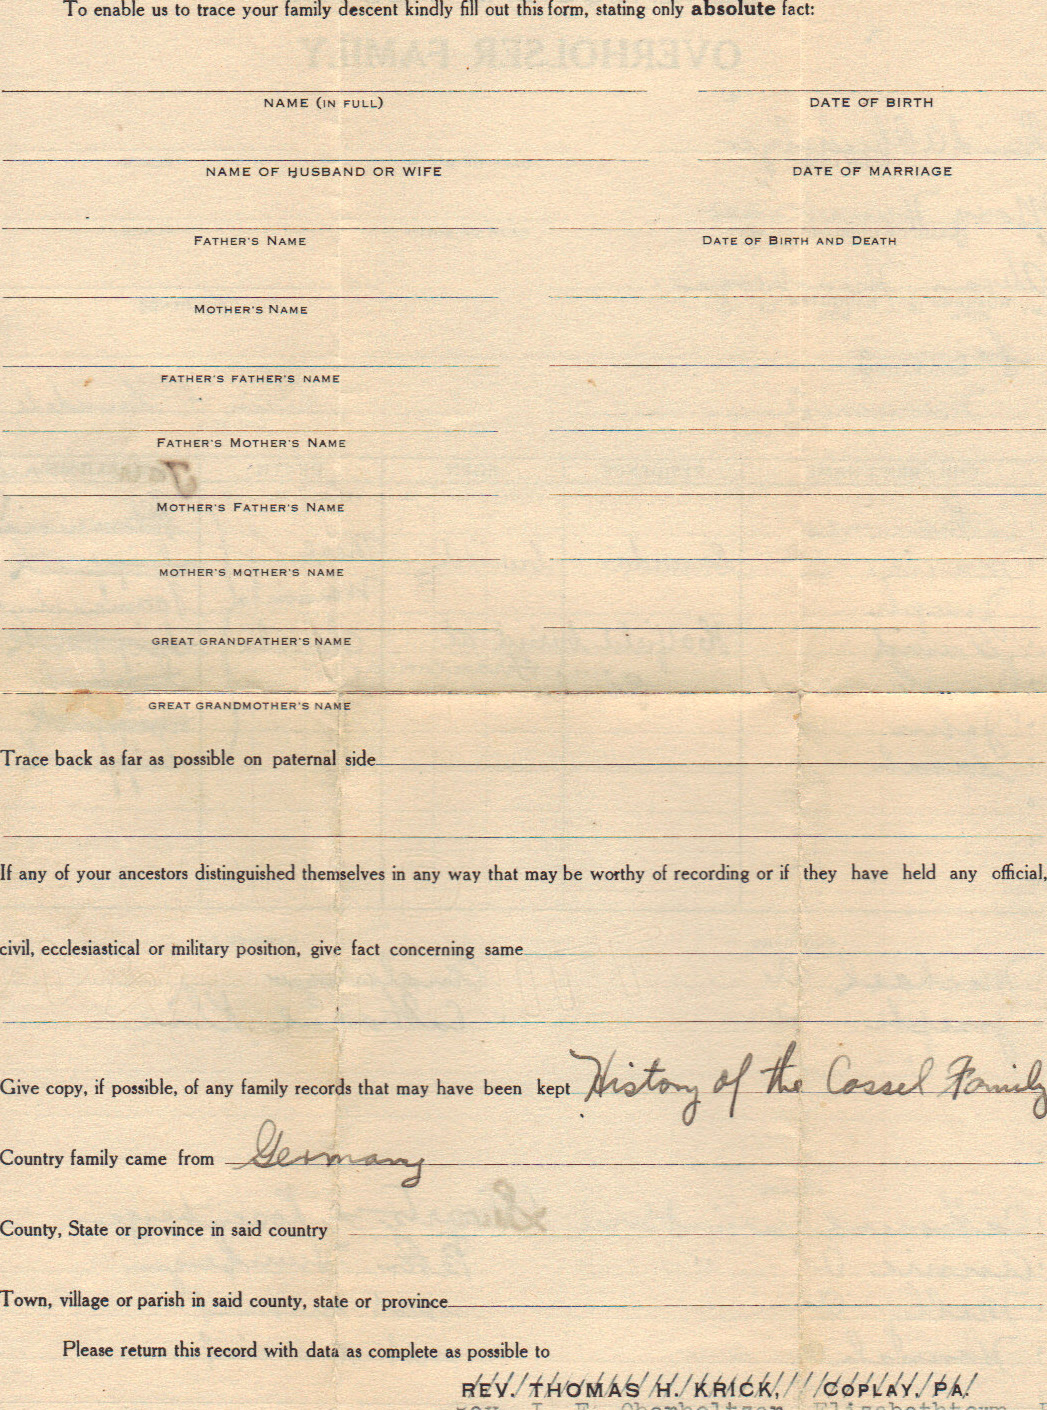 To enable us to trace your family descent kindly fill out this form, stating only absolute fact:
OVERHOLSER FAMILY
NAME (IN FULL) DATE OF BIRTH
NAME OF HUSBAND OR WIFE DATE OF MARRIAGE
FATHER'S NAME DATE OF BIRTH AND DEATH
MOTHER'S NAME
FATHER'S FATHER'S NAME
FATHER'S MOTHER'S NAME
MOTHER'S FATHER'S NAME
MOTHER'S MOTHER'S NAME
GREAT GRANDFATHER'S NAME
GREAT GRANDMOTHER'S NAME
Trace back as far as possible on paternal side
If any of your ancestors distinguished themselves in any way that may be worthy of recording or if they have held any official,
civil, ecclesiastical or military position, give fact concerning same
Give copy, if possible, of any family records that may have been kept History of the Cassel Family
Country family came from Germany
County, State or province in said country
Town, village or parish in said county, state or province
Please return this record with data as complete as possible to
REV. THOMAS H. KRICK, COPLAY, PA.
Elizabethtown